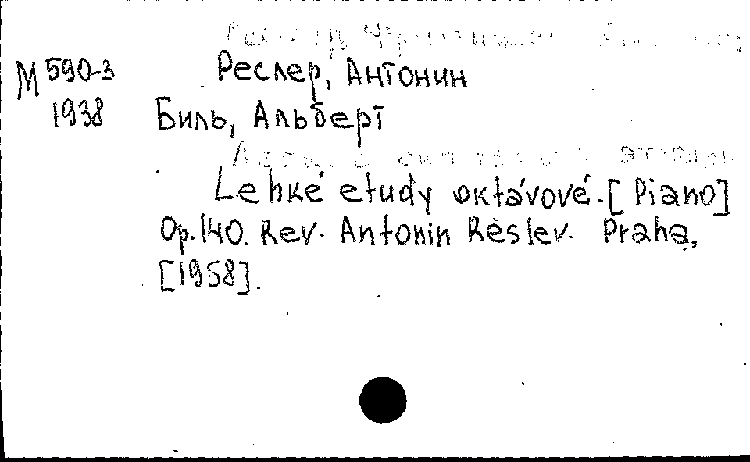 М 590-3 Реслер, Антонин
1938 Биль, Альберт
Lehké etudy oktávové. [Piano]
Op. 140. Rev. Antonin Réslev. Praha,
[1958].